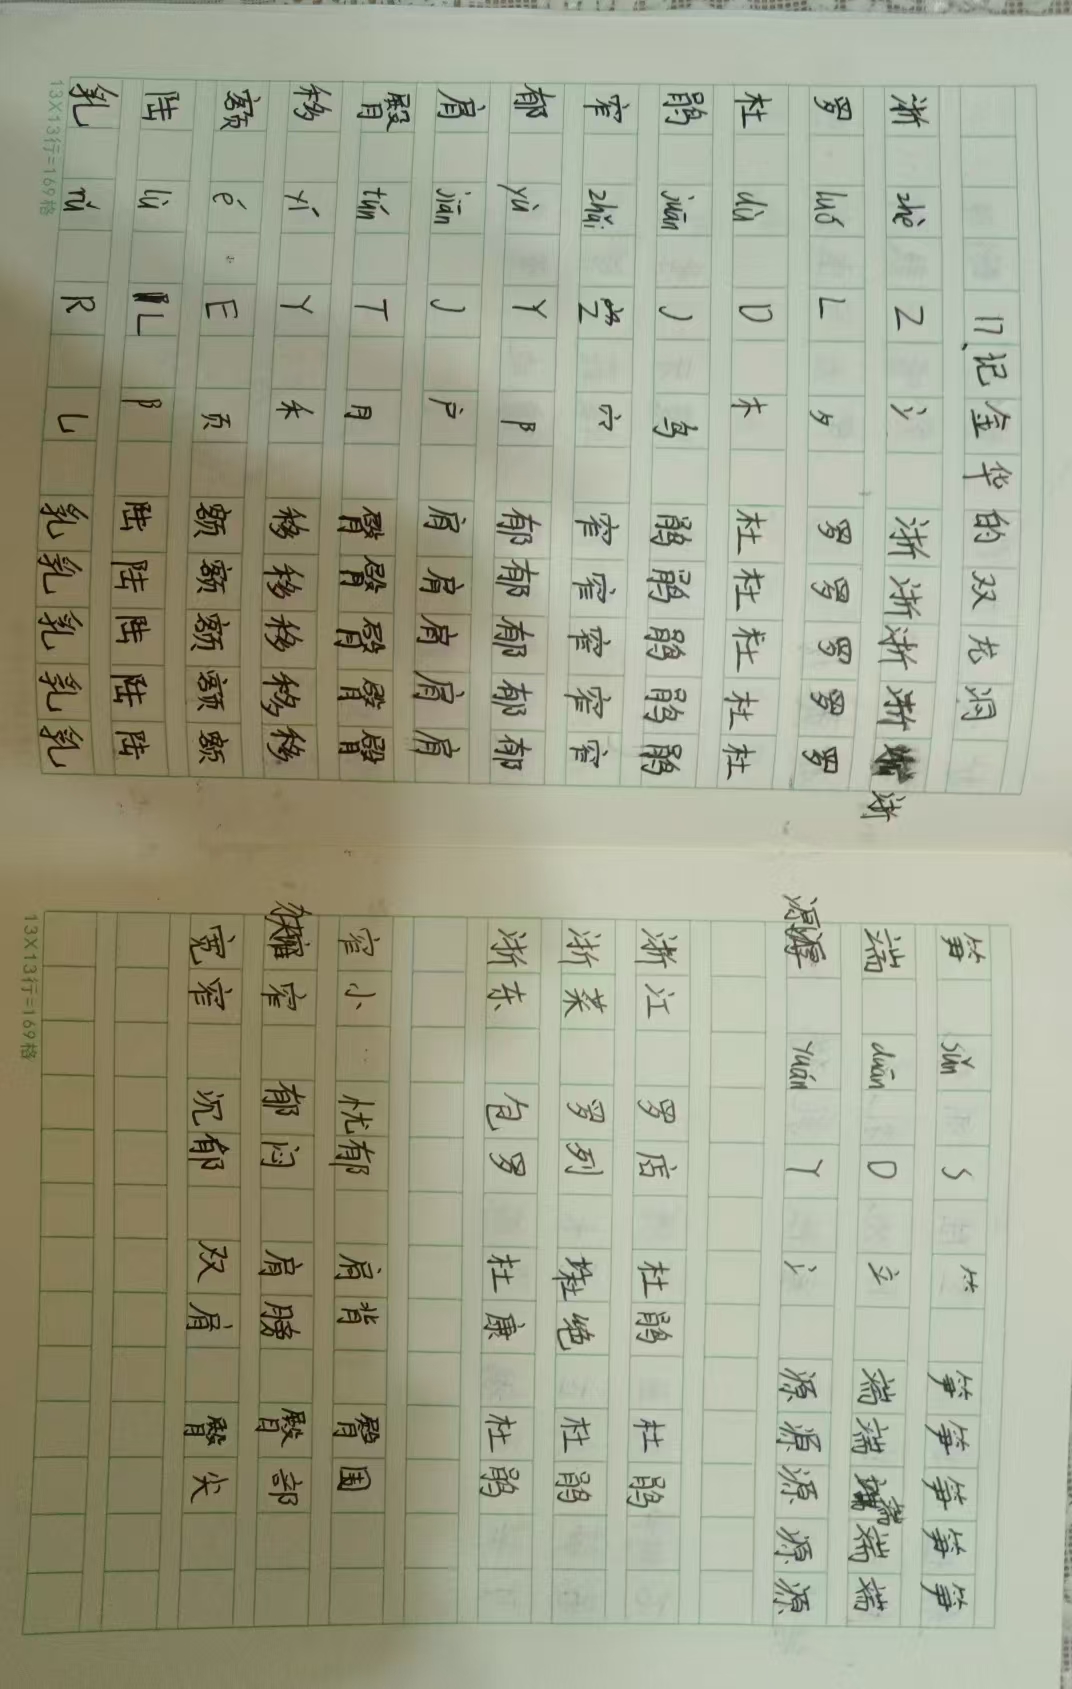 17、记金华的双龙洞
浙 zhè Z 氵 浙浙浙浙浙
罗 luó L 夕 罗罗罗罗罗
杜 dù D 木 杜杜杜杜杜
鹃 juān J 鸟 鹃鹃鹃鹃鹃
窄 zhǎi Z 穴 窄窄窄窄窄
郁 yù Y 阝 郁郁郁郁郁
肩 jiān J 户 肩肩肩肩肩
臀 tún T 月 臀臀臀臀臀
移 yí Y 禾 移移移移移
额 é E 页 额额额额额
陆 lù L 阝 陆陆陆陆陆
乳 rǔ R 乚 乳乳乳乳乳
13X13行=169格
笋 sǔn S ⺮ 笋笋笋笋笋
端 duān D 立 端端端端端
源 yuán Y 氵 源源源源源
浙江 罗店 杜鹃 杜鹃
浙菜 罗列 杜绝 杜鹃
浙东 包罗 杜康 杜鹃
窄小 忧郁 肩背 臀围
狭窄 郁闷 肩膀 臀部
宽窄 沉郁 双肩 臀尖
13X13行=169格